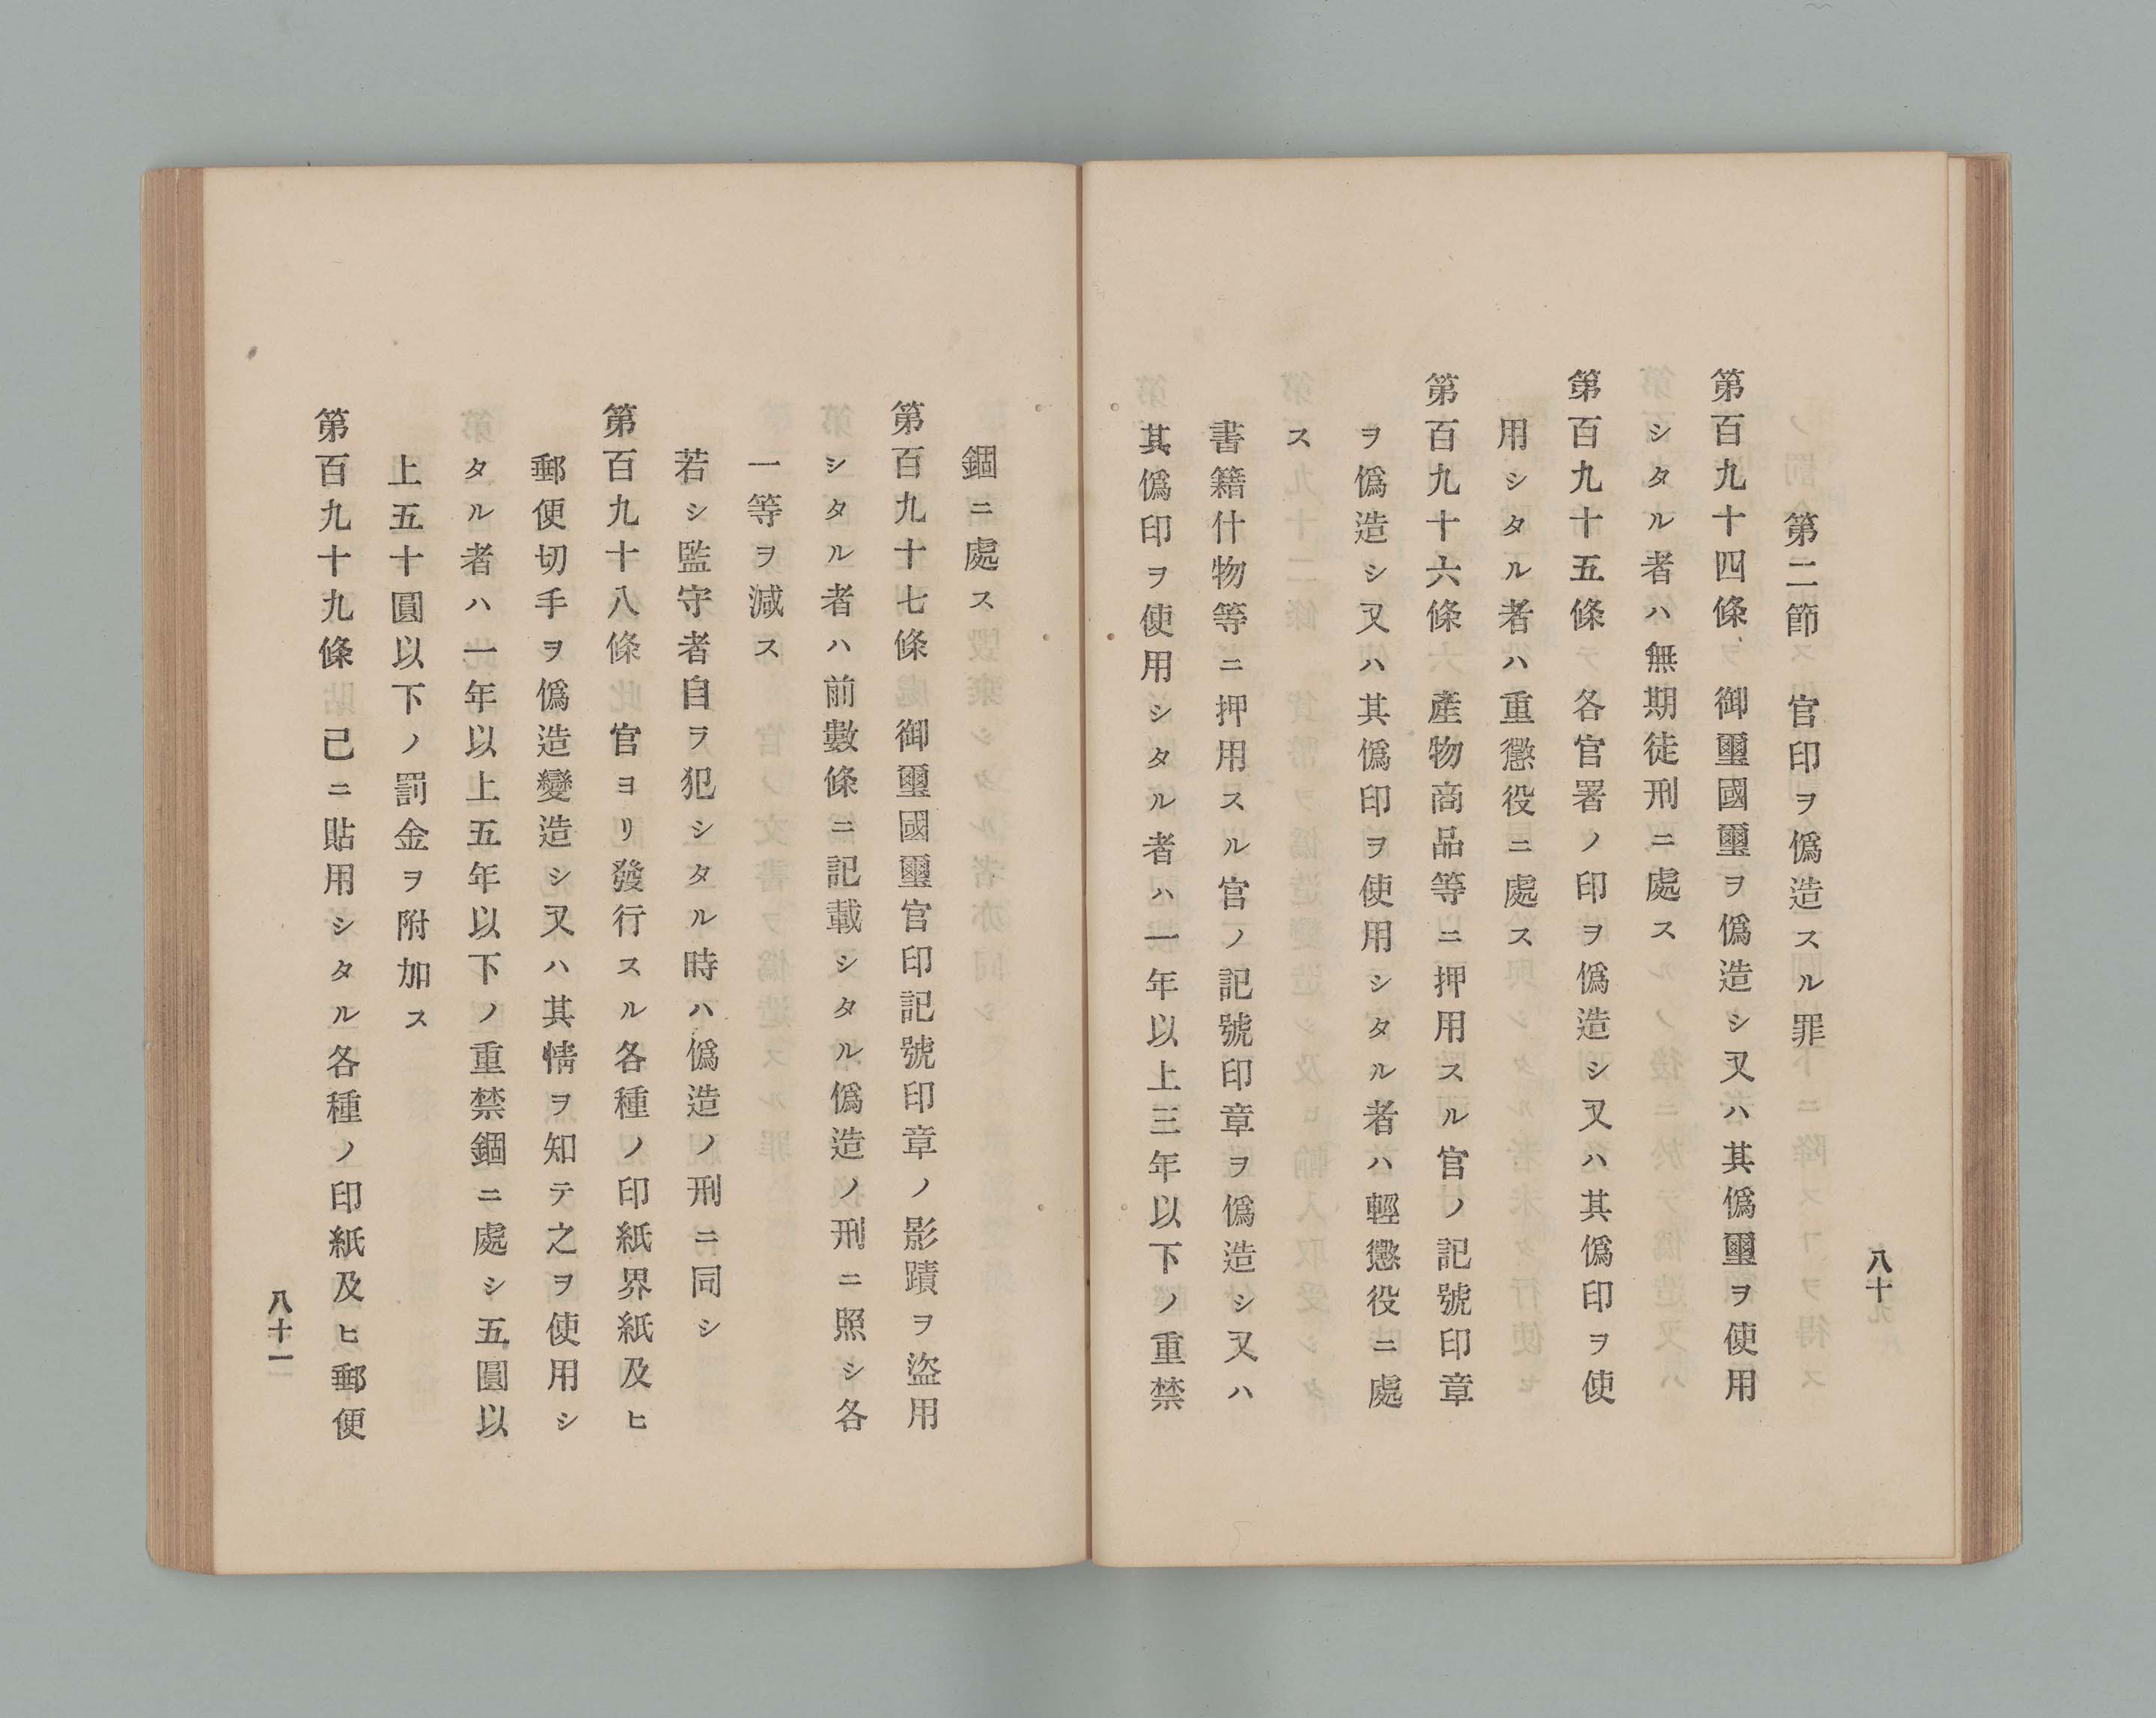 八十
第二節　官印ヲ僞造スル罪
第百九十四條　御璽國璽ヲ僞造シ又ハ其僞璽ヲ使用
シタル者ハ無期徒刑ニ處ス
第百九十五條　各官署ノ印ヲ僞造シ又ハ其僞印ヲ使
用シタル者ハ重懲役ニ處ス
第百九十六條　產物商品等ニ押用スル官ノ記號印章
ヲ僞造シ又ハ其僞印ヲ使用シタル者ハ輕懲役ニ處
ス
書籍什物等ニ押用スル官ノ記號印章ヲ僞造シ又ハ
其僞印ヲ使用シタル者ハ一年以上三年以下ノ重禁
錮ニ處ス
第百九十七條　御璽國璽官印記號印章ノ影蹟ヲ盜用
シタル者ハ前數條ニ記載シタル僞造ノ刑ニ照シ各
一等ヲ減ス
若シ監守者自ヲ犯シタル時ハ僞造ノ刑ニ同シ
第百九十八條　官ヨリ發行スル各種ノ印紙界紙及ヒ
郵便切手ヲ僞造變造シ又ハ其情ヲ知テ之ヲ使用シ
タル者ハ一年以上五年以下ノ重禁錮ニ處シ五圓以
上五十圓以下ノ罰金ヲ附加ス
第百九十九條　已ニ貼用シタル各種ノ印紙及ヒ郵便
八十一